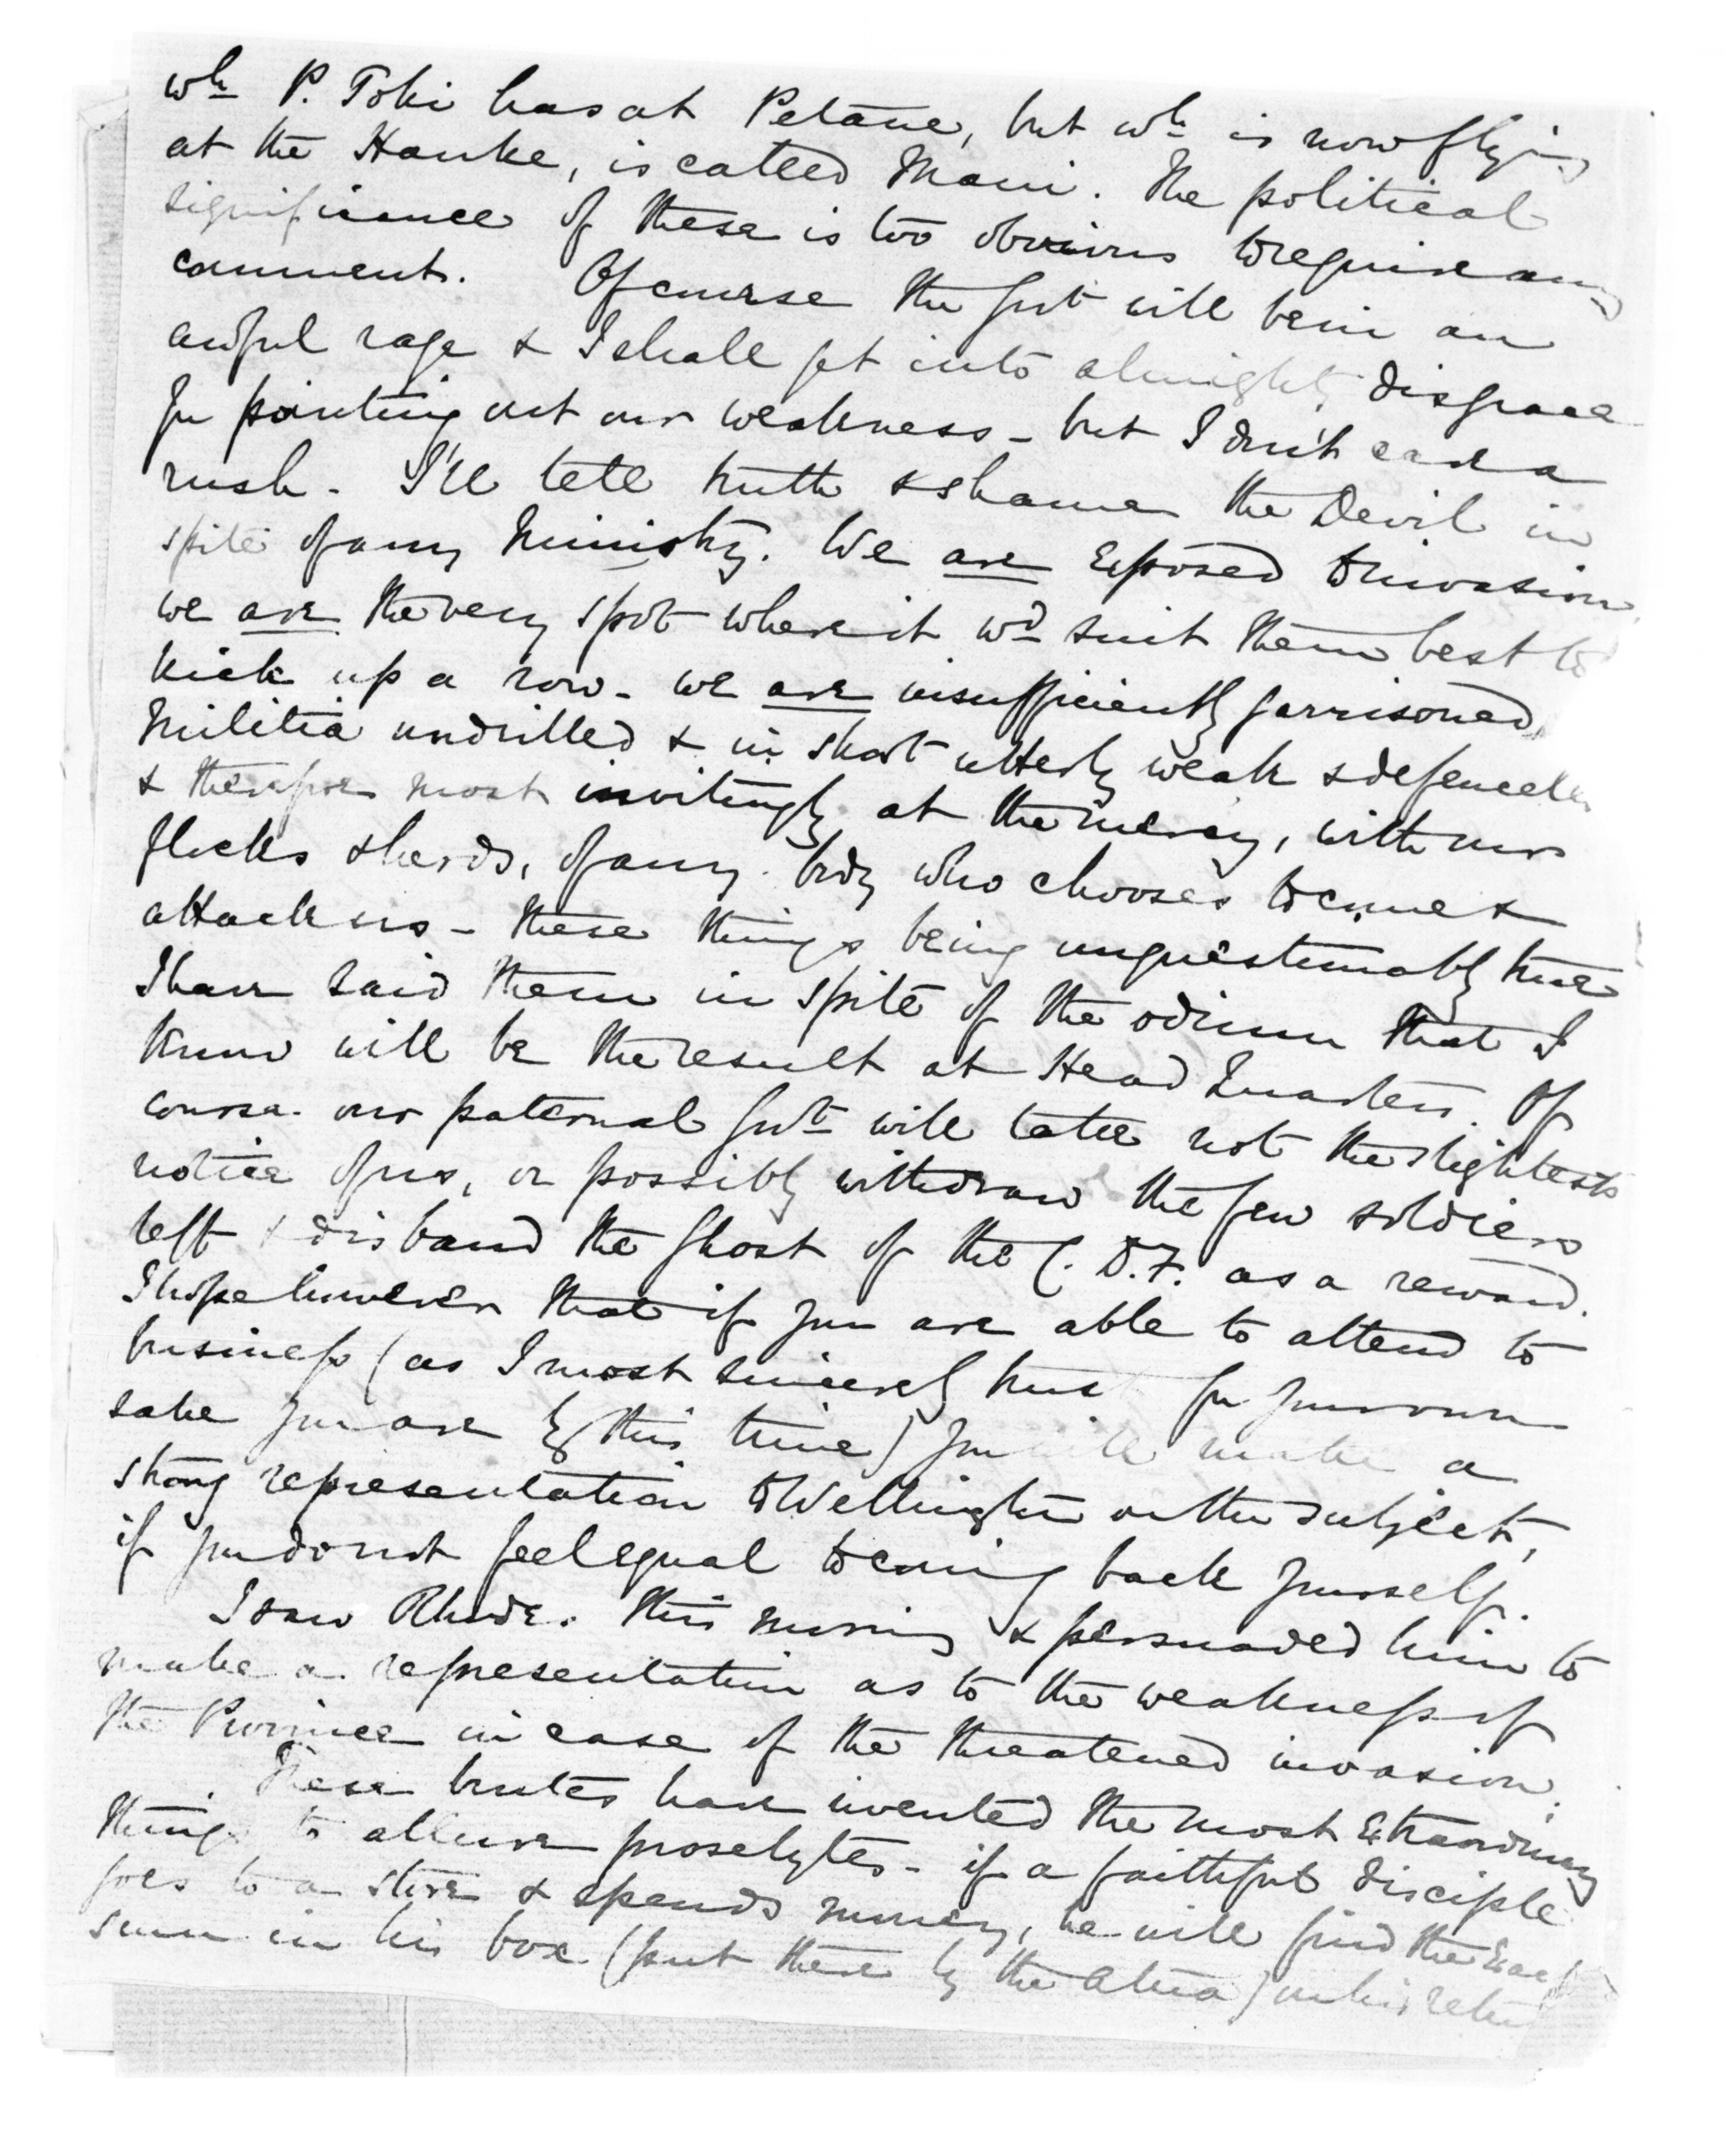 wh P. Toki has at Petane, but wh is now flying
at the Hauke, is called Maui. The political
significance of these is too obvious to require any
comment. Of course the Govt will be in an
awful rage & I shall get into almighty disgrace
for pointing out our weakness – but I don't care a
rush. I'll tell truth & shame the Devil in
spite of any Ministry. We are exposed to invasion,
we are the very spot where it wd suit them best to
kick up a row – we are insufficiently garrisoned,
Militia undrilled & in short utterly weak & defenceless
& therefore most invitingly at the mercy, with our
flocks & herds, of any body who chooses to come &
attack us – these things being unquestionably true
I have said them in spite of the odium that I
know will be the result at Head Quarters. Of
course our paternal Govt will take not the slightest
notice of us, or possibly withdraw the few soldiers
left & disband the ghost of the C.D.F. as a reward.
I hope however that if you are able to attend to
business (as I most sincerely trust for your own
sake you are by this time) you will make a
strong representation to Wellington on the subject,
if you do not feel equal to coming back yourself.
I saw Rhodes this morning & persuaded him to
make a representation as to the weakness of
the Province in case of the threatened invasion.
These brutes have invented the most extraordinary
things to allure proselytes – if a faithful disciple
goes to a store & spends money, he will find the exact
sum in his box (put there by the Atua) on his return